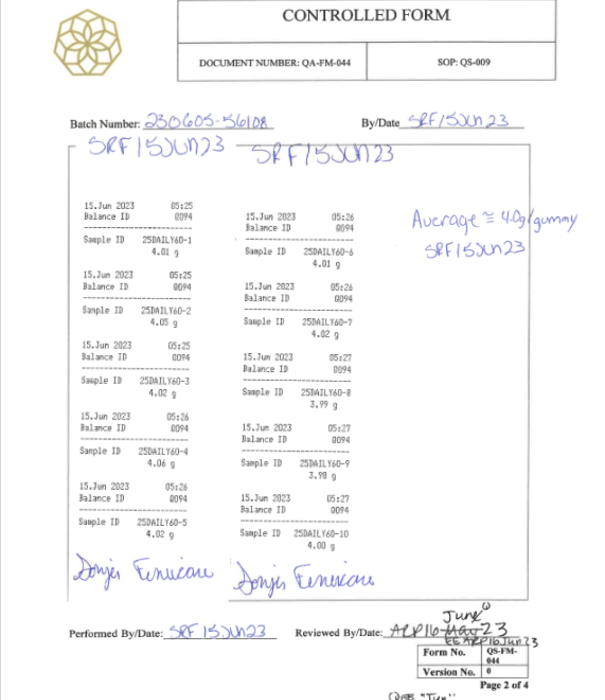 CONTROLLED FORM
DOCUMENT NUMBER: QA-FM-044 SOP: QS-009
Batch Number: 230605-56108 By/Date SRF15Jun23
SRF15Jun23 SRF15Jun23
15.Jun 2023 05:25
Balance ID 0094
Sample ID 25DAILY60-1
4.01 g
15.Jun 2023 05:25
Balance ID 0094
Sample ID 25DAILY60-2
4.05 g
15.Jun 2023 05:25
Balance ID 0094
Sample ID 25DAILY60-3
4.02 g
15.Jun 2023 05:26
Balance ID 0094
Sample ID 25DAILY60-4
4.06 g
15.Jun 2023 05:26
Balance ID 0094
Sample ID 25DAILY60-5
4.02 g
15.Jun 2023 05:26
Balance ID 0094
Sample ID 25DAILY60-6
4.01 g
15.Jun 2023 05:26
Balance ID 0094
Sample ID 25DAILY60-7
4.02 g
15.Jun 2023 05:27
Balance ID 0094
Sample ID 25DAILY60-8
3.99 g
15.Jun 2023 05:27
Balance ID 0094
Sample ID 25DAILY60-9
3.98 g
15.Jun 2023 05:27
Balance ID 0094
Sample ID 25DAILY60-10
4.00 g
Average ≅ 4.0g/gummy
SRF15Jun23
June
Performed By/Date: SRF 15Jun23 Reviewed By/Date: ARP16 May 23
EE ARP16Jun23
Form No. QS-FM-044
Version No. 0
Page 2 of 4